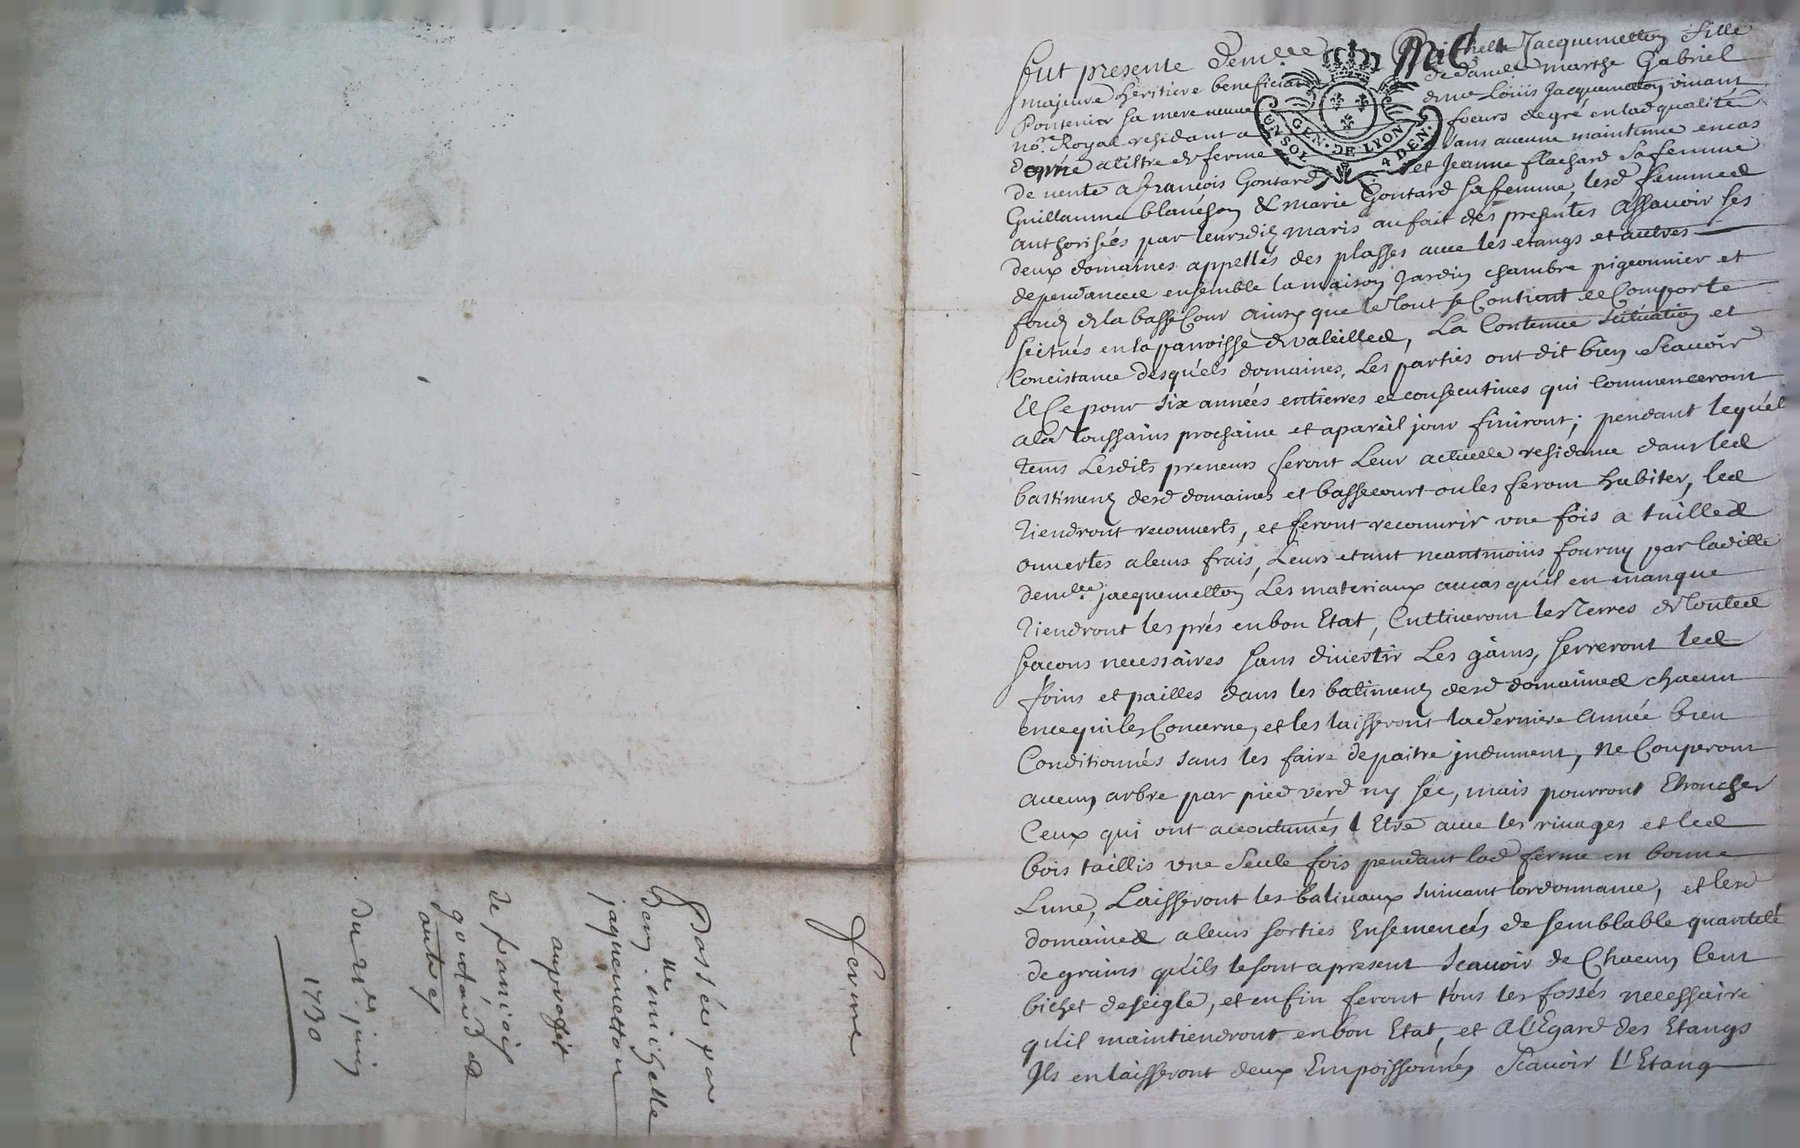 fut presente demlle Michelle Jacquemetton fille
majeure heritiere beneficiaire de dame marthe Gabriel
Pontenier sa mere veuve de me Loüis Jacquemetton vivant
nore. Royal residant a foeurs de gré en lad qualité
a titre de ferme sans aucune maintenue en cas
de vente a françois Gontard et Jeanne flachard sa femme
Guillaume blanchon & marie Gontard sa femme, lesd femmes
authorisées par leursdis maris au fait des presentes assavoir ses
deux domaines appellés des plasses avec les etangs et autres
dependances ensemble la maison Jardin chambre pigeonnier et
fond de la basse Cour ainsy que le tout se Contient et Comporte
scitués en la parroisse de valeilles, La Contenue scituation et
Concistance desquels domaines, Les parties ont dit bien scauoir
Et Ce pour six années entierres et consecutives qui Commenceront
a la toussains prochaine et a pareil jour finiront; pendant lequel
tems Lesdits preneurs feront Leur actuelle residance dans les
bastimens desd domaines et bassecourt ou les feront habiter, les
tiendront recouverts, et feront recouurir une fois a tuilles
ouvertes a leurs frais, Leurs etant neantmoins fourny par ladille
demlle jacquemetton Les materiaux au cas qu'il en manque
tiendront les prés en bon Etat, Cultiveront les terres de toutes
facons necessaires sans divertir Les gains, serreront les
foins et pailles dans les batimens desd domaines chacun
en ce qui les Concerne, et les laisseront la derniere année bien
Conditionnés sans les faire depaitre induement, ne Couperont
aucun arbre par pied verd ny sec, mais pourront Etroncher
Ceux qui ont accoutumés l Etre avec les rivages et les
bois taillis une seule fois pendant lad ferme en bonne
Lune, Laisseront les balivaux suivant lordonnance, et lesd
domaines a leurs sorties Ensemencés de semblable quantité
de grains qu'ils le sont a present scauoir de Chacun Cent
bichet de seigle, et enfin feront tous les fossés necessaire
qu'il maintiendront en bon Etat, et A l'Egard des Etangs
Ils en laisseront deux Empoissonnés scauoir L'Etang
GEN. DE LYON
UN SOL 4 DEN.
ferme
Passée par
Demlle michelle
jaquemetton
au proffit
de francois
goutard et
autres
Du 21e. juin
1730